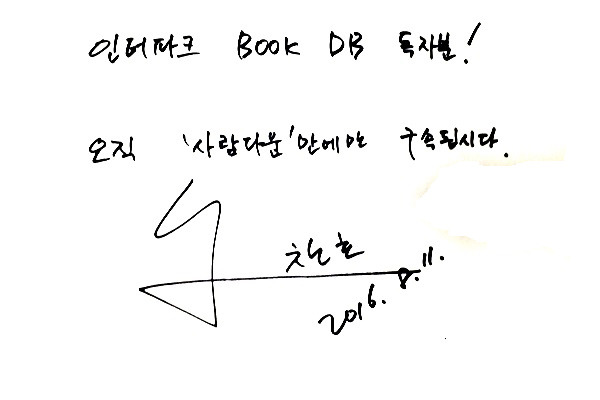 인터파크 BOOK DB 독자분!
오직 '사람다움'안에만 구속됩시다.
2016. 8. 11.